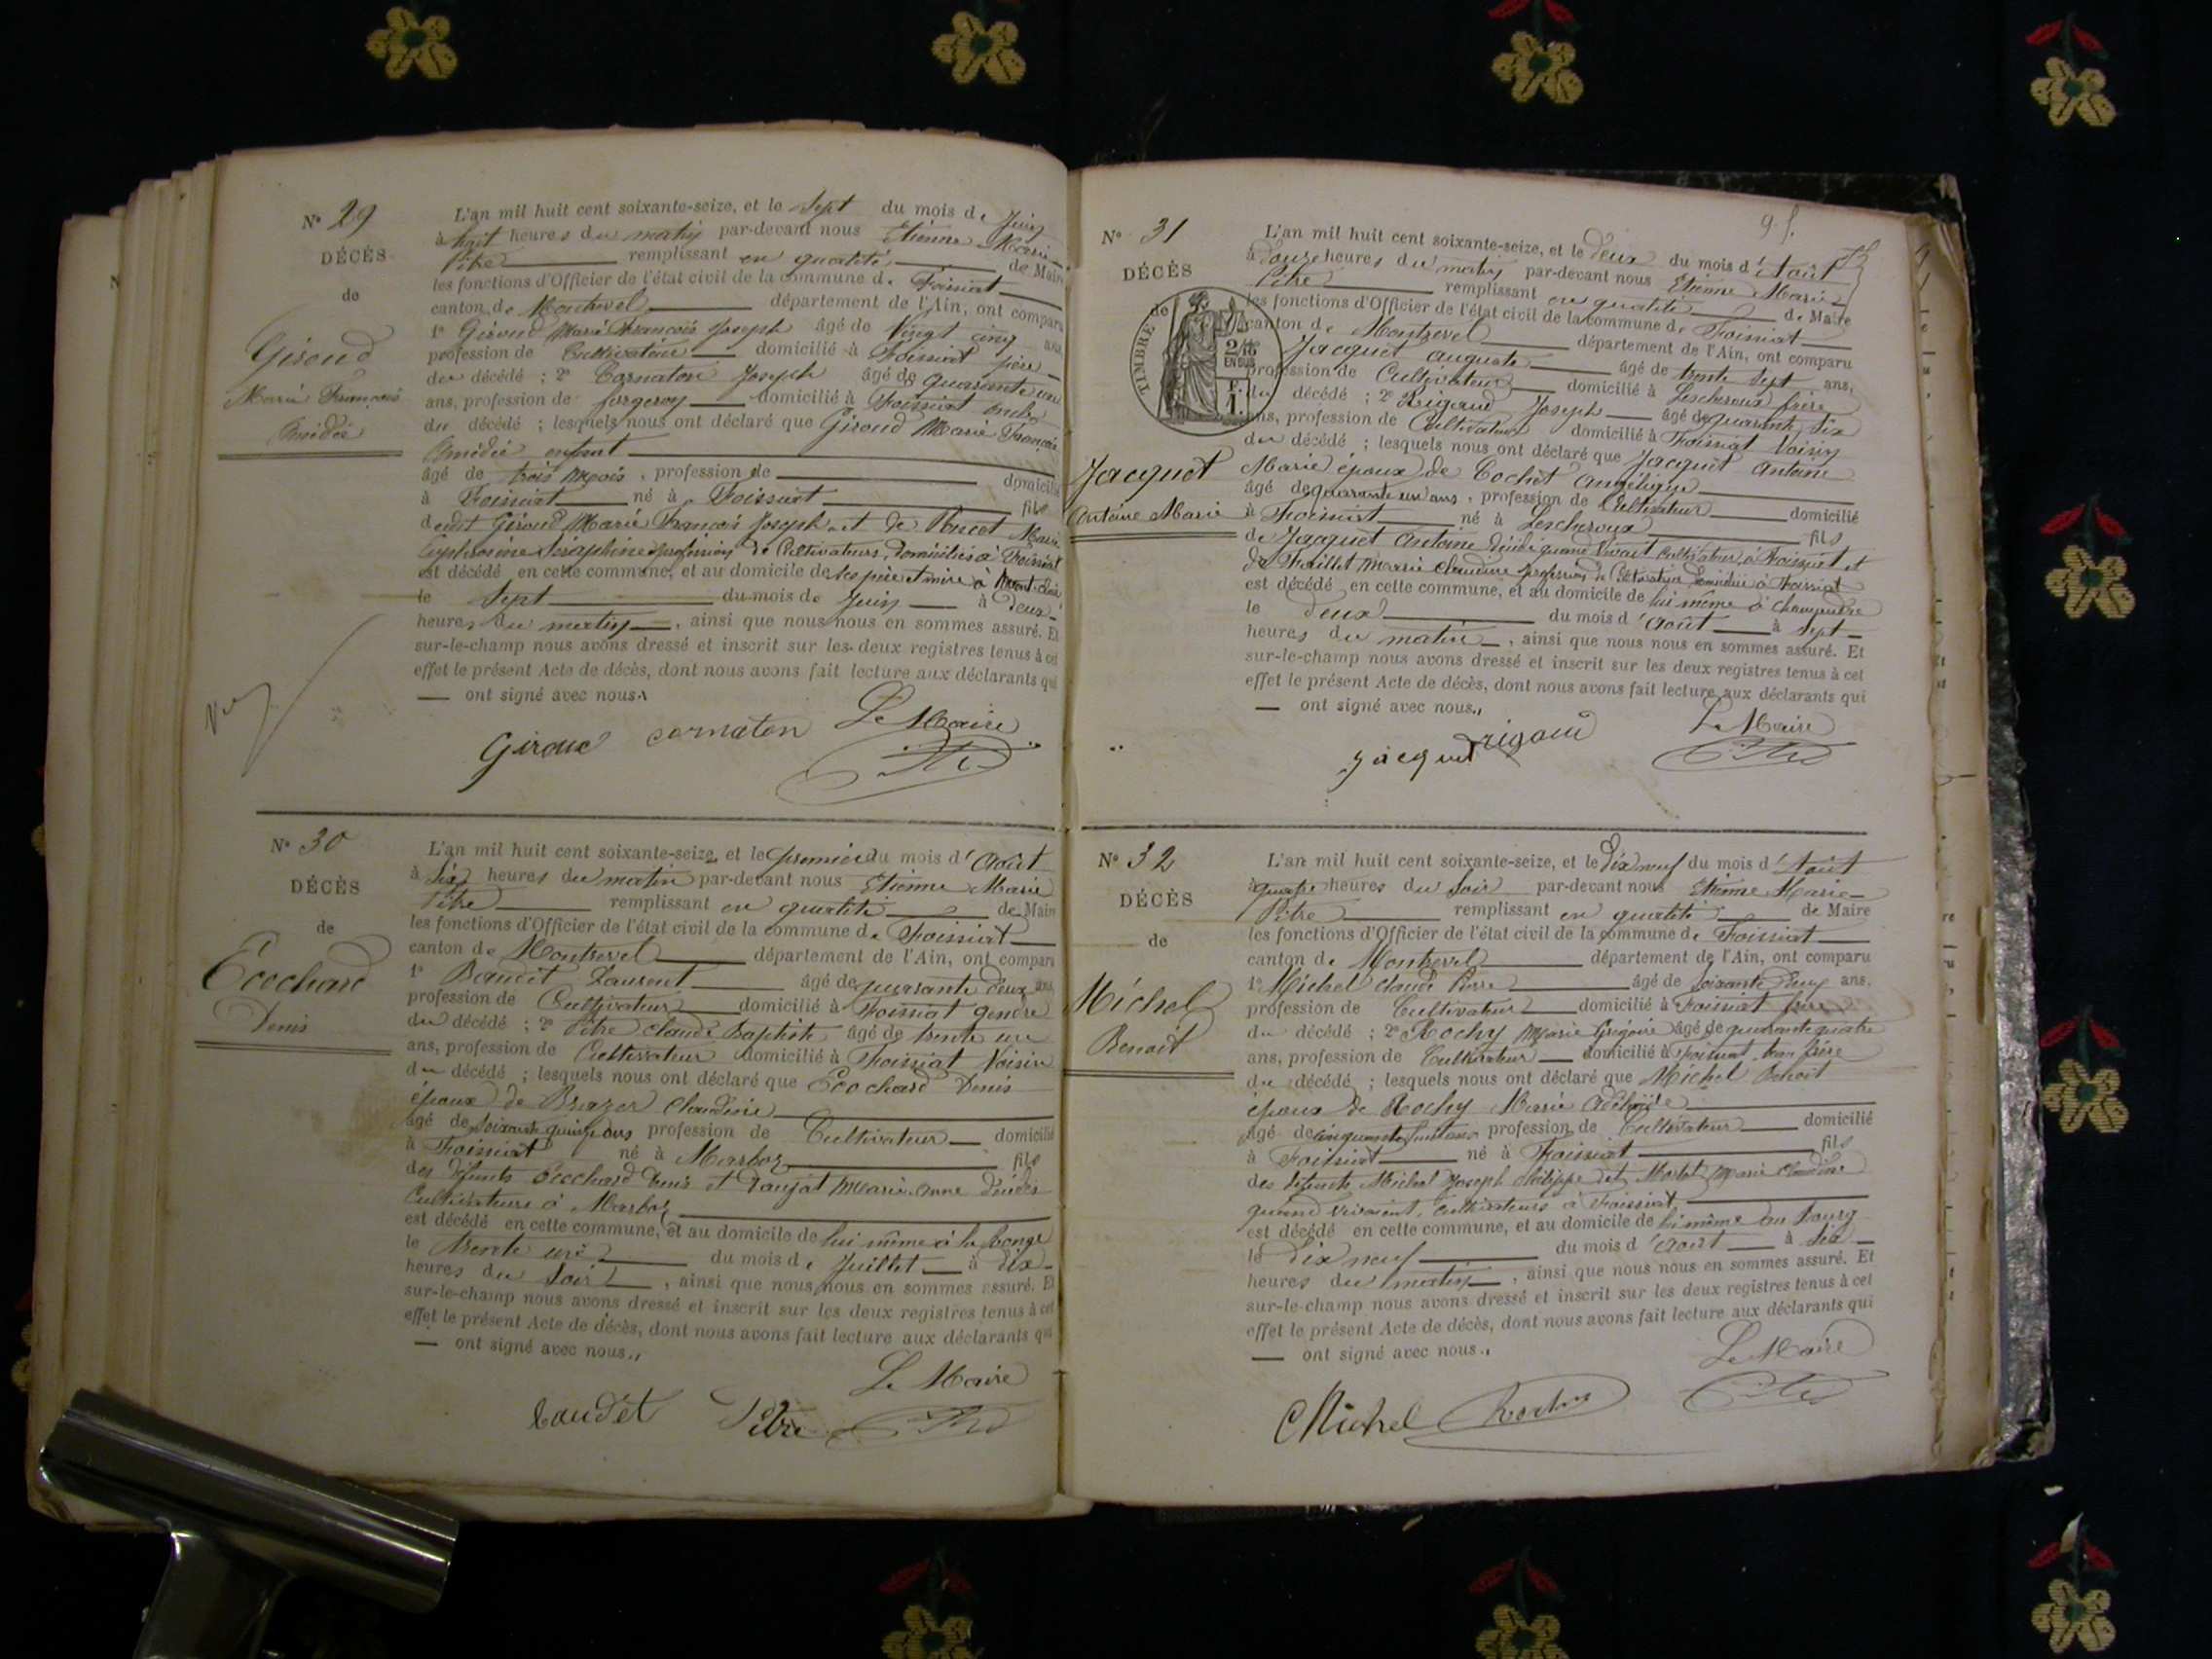 N° 29
DÉCÈS
de
Giroud
Marie François
Amédée
L'an mil huit cent soixante-seize, et le Sept du mois de Juin
à huit heures du matin par-devant nous Etienne Marie
Pitre remplissant en qualité de Maire
les fonctions d'Officier de l'état civil de la commune de Foissiat
canton de Montrevel département de l'Ain, ont comparu
1° Giroud Marie François Joseph âgé de Vingt cinq ans,
profession de Cultivateur domicilié à Foissiat père
du décédé ; 2° Cornaton Joseph âgé de quarante un
ans, profession de forgeron domicilié à Foissiat oncle
du décédé ; lesquels nous ont déclaré que Giroud Marie François
Amédée enfant
âgé de trois mois, profession de domicilié
à Foissiat né à Foissiat fils
dudit Giroud Marie François Joseph et de Poncet Marie
Séraphine profession de Cultivateurs domiciliés à Foissiat
est décédé en cette commune, et au domicile de ses père et mère à
le Sept du mois de Juin à deux
heures du matin, ainsi que nous nous en sommes assuré. Et
sur-le-champ nous avons dressé et inscrit sur les deux registres tenus à cet
effet le présent Acte de décès, dont nous avons fait lecture aux déclarants qui
— ont signé avec nous.
Giroud cornaton Le Maire
Pitre
N° 30
DÉCÈS
de
Ecochard
Denis
L'an mil huit cent soixante-seize, et le premier du mois d'Août
à Six heures du matin par-devant nous Etienne Marie
Pitre remplissant en qualité de Maire
les fonctions d'Officier de l'état civil de la commune de Foissiat
canton de Montrevel département de l'Ain, ont comparu
1° Baudet Laurent âgé de quarante deux ans,
profession de Cultivateur domicilié à Foissiat gendre
du décédé ; 2° Pitre Claude Baptiste âgé de trente un
ans, profession de Cultivateur domicilié à Foissiat Voisin
du décédé ; lesquels nous ont déclaré que Ecochard Denis
époux de Brazer Claudine
âgé de soixante quinze ans profession de Cultivateur domicilié
à Foissiat né à Marboz fils
des défunts Ecochard Denis et Danjat Marie Anne décédés
Cultivateurs à Marboz
est décédé en cette commune, et au domicile de lui même à la
le trente un du mois de Juillet à dix
heures du Soir, ainsi que nous nous en sommes assuré. Et
sur-le-champ nous avons dressé et inscrit sur les deux registres tenus à cet
effet le présent Acte de décès, dont nous avons fait lecture aux déclarants qui
— ont signé avec nous.
Le Maire
baudet Pitre Pitre
9 f.
N° 31
DÉCÈS
de
TIMBRE
2/10 EN SUS
F.
1.
Jacquet
Antoine Marie
L'an mil huit cent soixante-seize, et le deux du mois d'Août
à douze heures du matin par-devant nous Etienne Marie
Pitre remplissant en qualité de Maire
les fonctions d'Officier de l'état civil de la commune de Foissiat
canton de Montrevel département de l'Ain, ont comparu
Jacquet Auguste âgé de trente Sept ans,
profession de Cultivateur domicilié à Lescheroux frère
du décédé ; 2° Rigaud Joseph âgé de quarante Six
ans, profession de Cultivateur domicilié à Foissiat Voisin
du décédé ; lesquels nous ont déclaré que Jacquet Antoine
Marie époux de Cochet Angélique
âgé de quarante un ans, profession de Cultivateur domicilié
à Foissiat né à Lescheroux fils
de Jacquet Antoine décédé quand vivait Cultivateur à Foissiat et
de Feuillet Marie Claudine profession de Cultivateur domiciliée à Foissiat
est décédé en cette commune, et au domicile de lui même à
le deux du mois d'Août à Sept
heures du matin, ainsi que nous nous en sommes assuré. Et
sur-le-champ nous avons dressé et inscrit sur les deux registres tenus à cet
effet le présent Acte de décès, dont nous avons fait lecture aux déclarants qui
— ont signé avec nous.
Jacquet rigaud Le Maire
Pitre
N° 32
DÉCÈS
de
Michel
Benoit
L'an mil huit cent soixante-seize, et le Dix neuf du mois d'Août
à quatre heures du Soir par-devant nous Etienne Marie
Pitre remplissant en qualité de Maire
les fonctions d'Officier de l'état civil de la commune de Foissiat
canton de Montrevel département de l'Ain, ont comparu
1° Michel Claude Pierre âgé de Soixante deux ans,
profession de Cultivateur domicilié à Foissiat frère
du décédé ; 2° Rochy Marie Grégoire âgé de quarante quatre
ans, profession de Cultivateur domicilié à Foissiat beau frère
du décédé ; lesquels nous ont déclaré que Michel Benoit
époux de Rochy Marie Adélaïde
âgé de cinquante huit ans profession de Cultivateur domicilié
à Foissiat né à Foissiat fils
des défunts Michel Joseph Philippe et Marie Claudine
quand vivaient Cultivateurs à Foissiat
est décédé en cette commune, et au domicile de lui même au bourg
le Dix neuf du mois d'Août à Six
heures du matin, ainsi que nous nous en sommes assuré. Et
sur-le-champ nous avons dressé et inscrit sur les deux registres tenus à cet
effet le présent Acte de décès, dont nous avons fait lecture aux déclarants qui
— ont signé avec nous.
Le Maire
C Michel Rochy Pitre